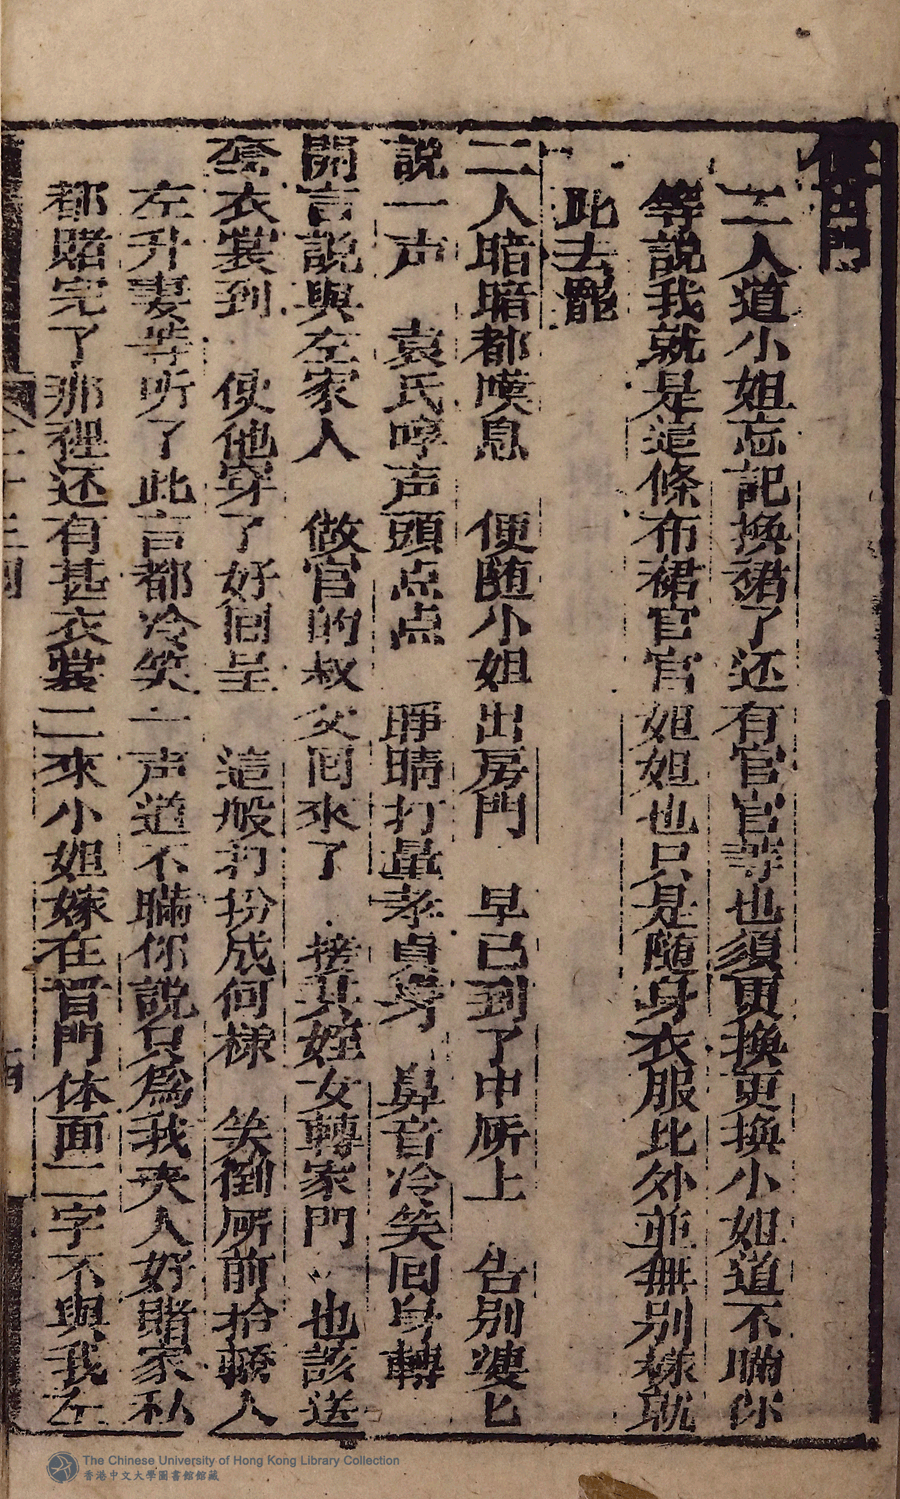 二人道小姐忘記換裙了还有官官等也須更換更換小姐道不瞞你
等說我就是這條布裙官官姐姐也只是随身衣服此外並無别樣就
此去罷
二人暗暗都嘆息　便随小姐出房門　早已到了中所上　告别㜢匕
說一声　袁氏哼声頭点点　睜睛打量孝貞身　鼻音冷笑囘身轉
開言說與左家人　做官的叔父囘來了　接其姪女轉家門　也該送
套衣裳到　使他穿了好囘呈　這般打扮成何樣　笑倒所前抬轎人
左升妻等听了此言都冷笑一声道不瞞你說只為我夾人好賭家私
都賭完了那裡还有甚衣裳二來小姐嫁在晋門体面二字不與我左
The Chinese University of Hong Kong Library Collection
香港中文大學圖書館館藏